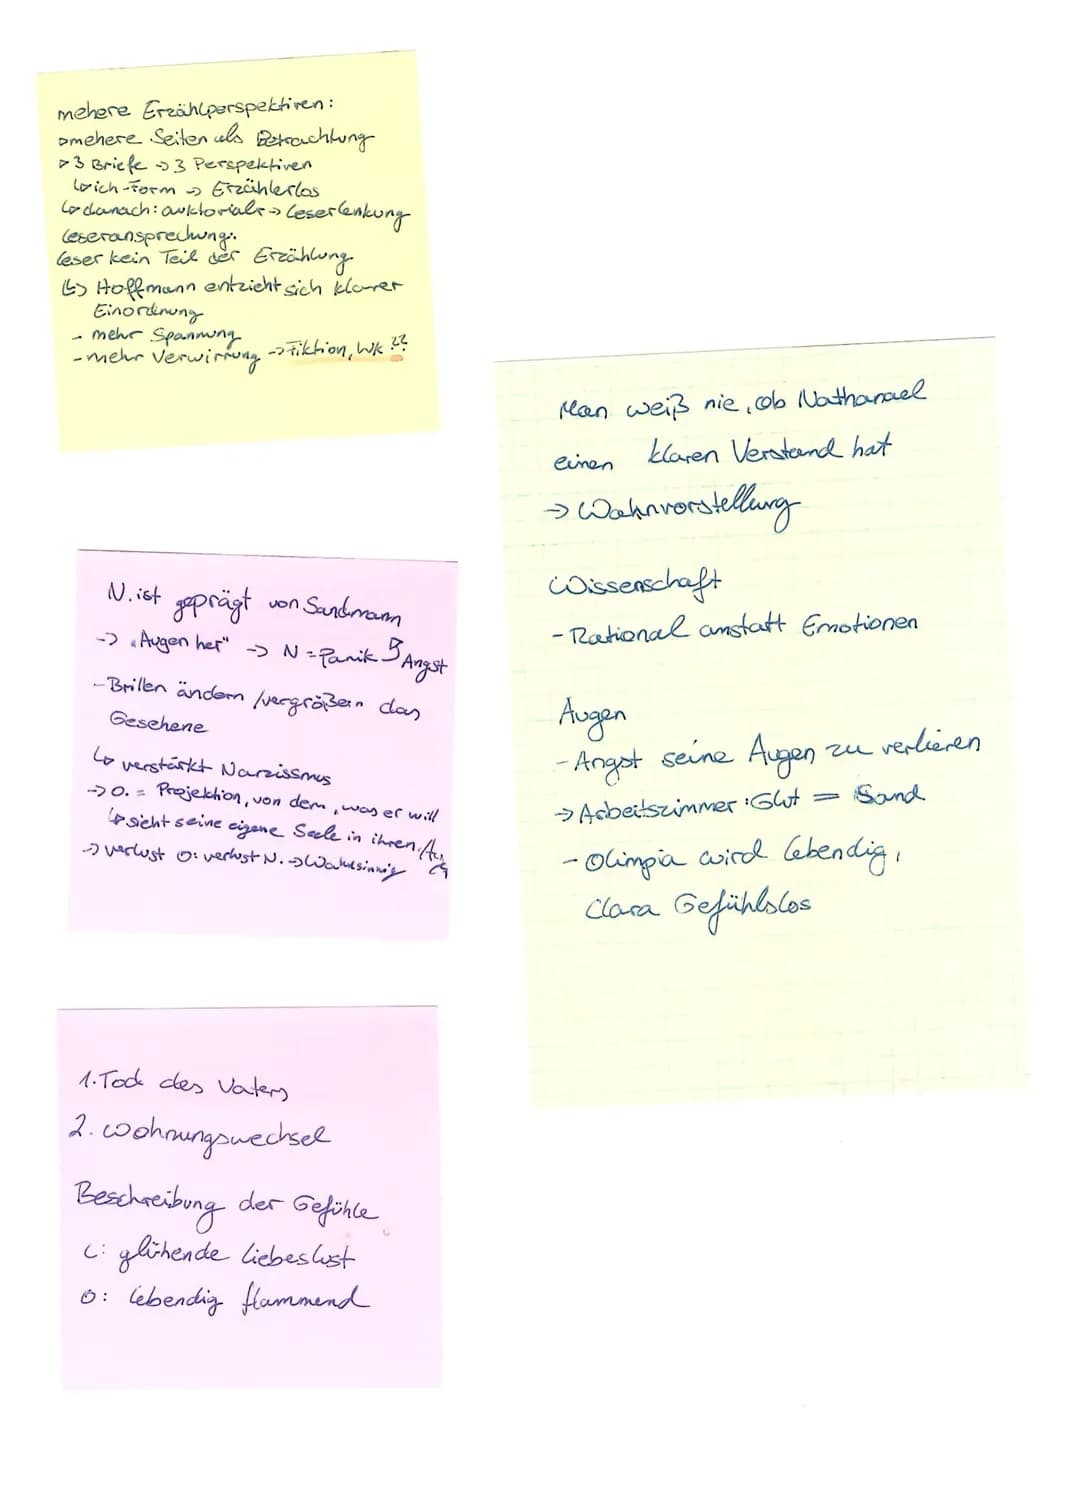 mehere Erzählperspektiven:
▹mehere Seiten als Betrachtung
▹3 Briefe → 3 Perspektiven
↳ich-Form → Erzählerlos
↳danach: auktorialr → Leserlenkung
Leseransprechung:
Leser kein Teil der Erzählung
(↳) Hoffmann entzieht sich klarer
Einordnung
- mehr Spannung
- mehr Verwirrung → Fiktion, WK ??
N. ist geprägt von Sandmann
-> "Augen her" -> N = Panik & Angst
- Brillen ändern /vergrößern das
Gesehene
↳ verstärkt Narzissmus
-> O. = Projektion, von dem, was er will
↳ sieht seine eigene Seele in ihren
-> verlust O: verlust N. -> Wahnsinnig
1. Tod des Vaters
2. Wohnungswechsel
Beschreibung der Gefühle
C: glühende Liebeslust
O: lebendig flammend
Man weiß nie, ob Nathanael
einen klaren Verstand hat
-> Wahnvorstellung
Wissenschaft
- Rational anstatt Emotionen
Augen
- Angst seine Augen zu verlieren
-> Arbeitszimmer: Glut = Sand
- Olimpia wird lebendig,
Clara Gefühlslos